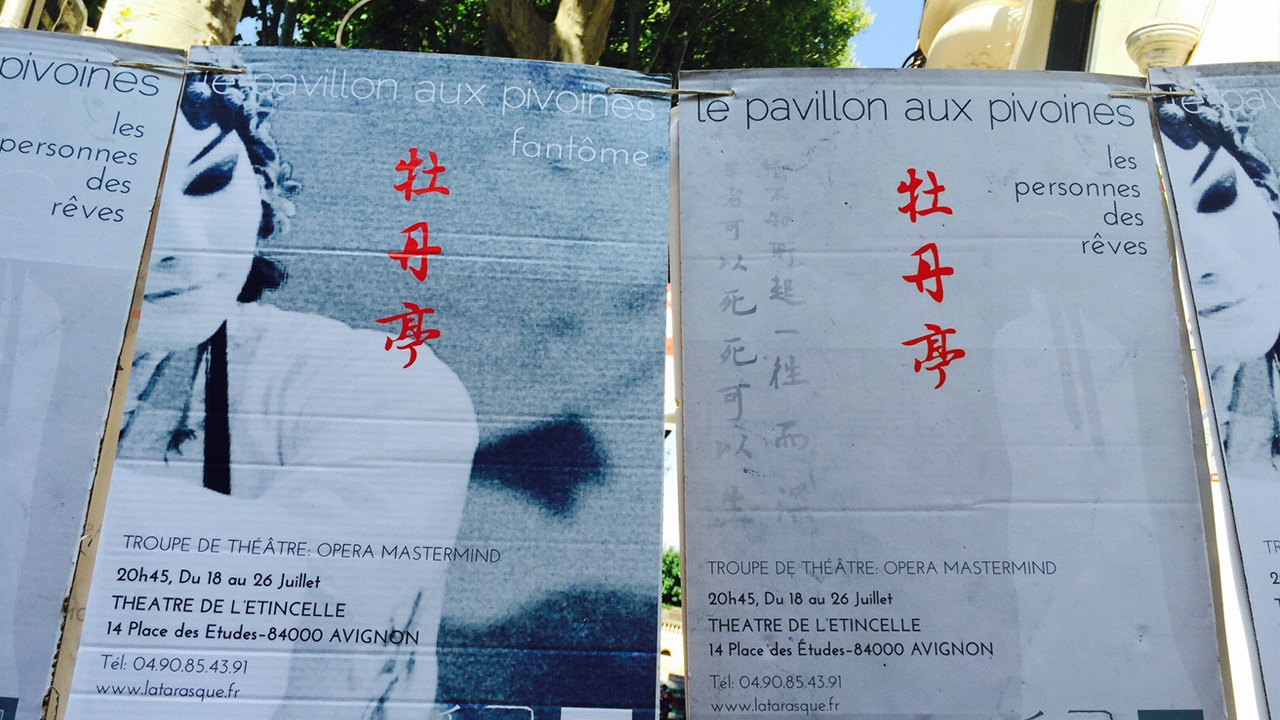 pivoines
les
personnes
des
rêves
le pavillon aux pivoines
fantôme
牡丹亭
TROUPE DE THÉÂTRE: OPERA MASTERMIND
20h45, Du 18 au 26 Juillet
THEATRE DE L'ETINCELLE
14 Place des Etudes-84000 AVIGNON
Tél: 04.90.85.43.91
www.latarasque.fr
le pavillon aux pivoines
les
personnes
des
rêves
牡丹亭
所起一往而深
可以死死可以生
TROUPE DE THÉÂTRE: OPERA MASTERMIND
20h45, Du 18 au 26 Juillet
THEATRE DE L'ETINCELLE
14 Place des Études-84000 AVIGNON
Tél: 04.90.85.43.91
www.latarasque.fr
le pav